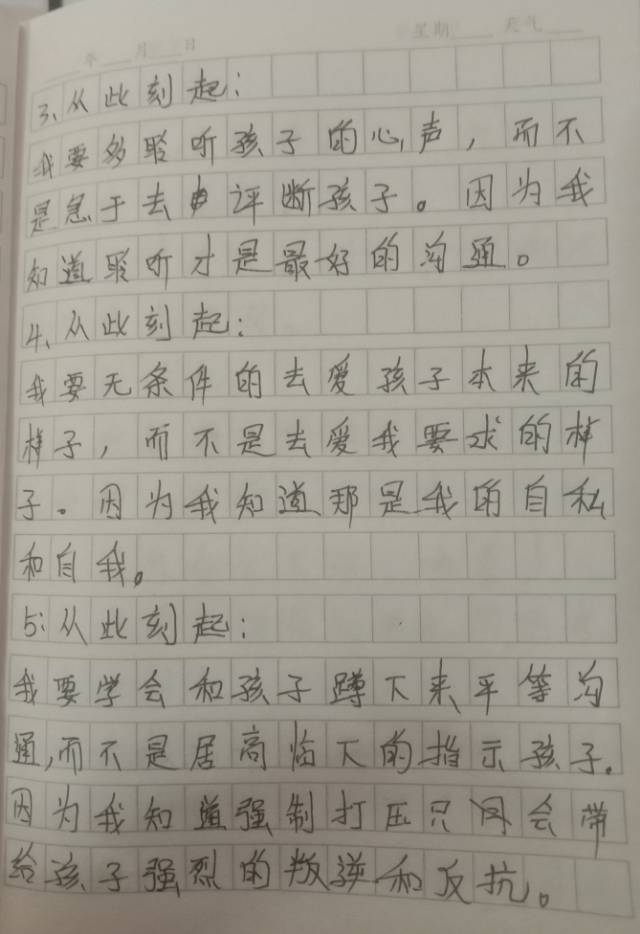 年 月 日 星期 天气
3、从此刻起：
我要多聆听孩子的心声，而不
是急于去评断孩子。因为我
知道聆听才是最好的沟通。
4、从此刻起：
我要无条件的去爱孩子本来的
样子，而不是去爱我要求的样
子。因为我知道那是我的自私
和自我。
5：从此刻起：
我要学会和孩子蹲下来平等沟
通，而不是居高临下的指示孩子。
因为我知道强制打压只会带
给孩子强烈的叛逆和反抗。